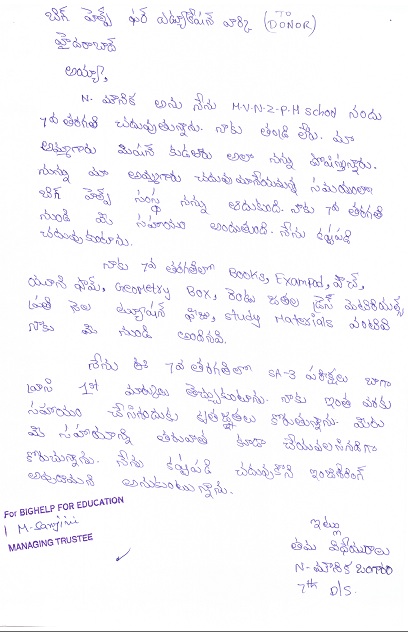 TO
బిగ్ హెల్ప్ ఫర్ ఎడ్యుకేషన్ వారికి (DONOR)
హైదరాబాద్
అయ్యా,
N. మౌనిక అను నేను M.V.N.Z.P.H School నందు
7వ తరగతి చదువుతున్నాను. నాకు తండ్రి లేరు. మా
అమ్మగారు మిషన్ కుడతారు అలా నన్ను పోషిస్తున్నారు.
నన్ను మా అమ్మగారు చదువు మానేయమన్న సమయంలో
బిగ్ హెల్ప్ సంస్థ నన్ను ఆదుకుంది. నాకు 7వ తరగతి
నుండి మీ సహాయం అందుతుంది. నేను కష్టపడి
చదువుకుంటాను.
నాకు 7వ తరగతిలో Books, Exampad, పౌచ్,
యూనిఫామ్, Geometry Box, రెండు జతల డ్రెస్ మెటీరియల్స్
ప్రతి నెల ట్యూషన్ ఫీజు, Study Materials వంటివి
నాకు మీ నుండి అందినవి.
నేను ఈ 7వ తరగతిలో SA-3 పరీక్షలు బాగా
వ్రాసి 1st మార్కులు తెచ్చుకుంటాను. నాకు ఇంత వరకు
సహాయం చేసినందుకు కృతజ్ఞతలు కోరుతున్నాను. మీరు
మీ సహాయాన్ని తరువాత కూడా చేయవలసినదిగా
కోరుచున్నాను. నేను కష్టపడి చదువుకొని ఇంజనీరింగ్
అవ్వాలని అనుకుంటున్నాను.
For BIGHELP FOR EDUCATION
M. Sanjini
MANAGING TRUSTEE
ఇట్లు
తమ విధేయురాలు
N. మౌనిక
7th D/S.